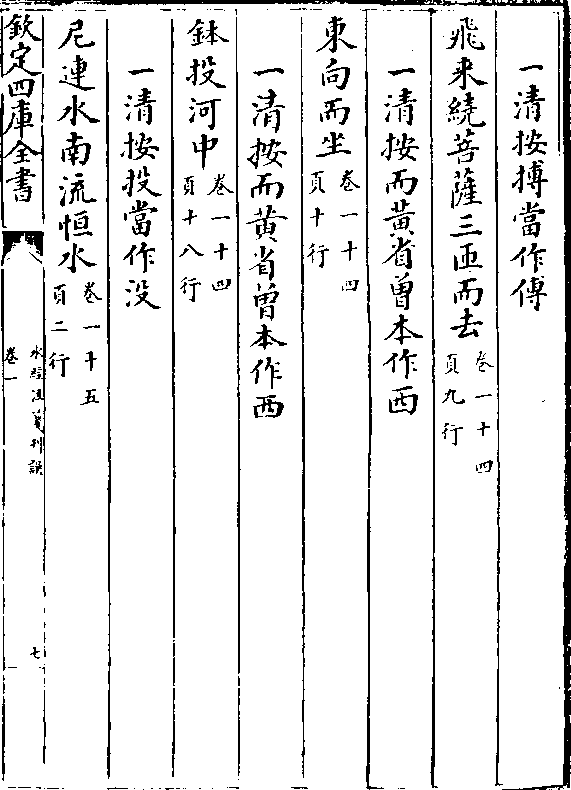 一清按摶當作傅
飛來繞菩薩三匝而去卷一十四頁九行
一清按而黄省曾本作西
東向而坐卷一十四頁十行
一清按而黄省曾本作西
鉢投河中卷一十四頁十八行
一清按投當作没
尼連水南流恒水卷一十五頁二行
欽定四庫全書
水經注箋刊誤
卷一
七